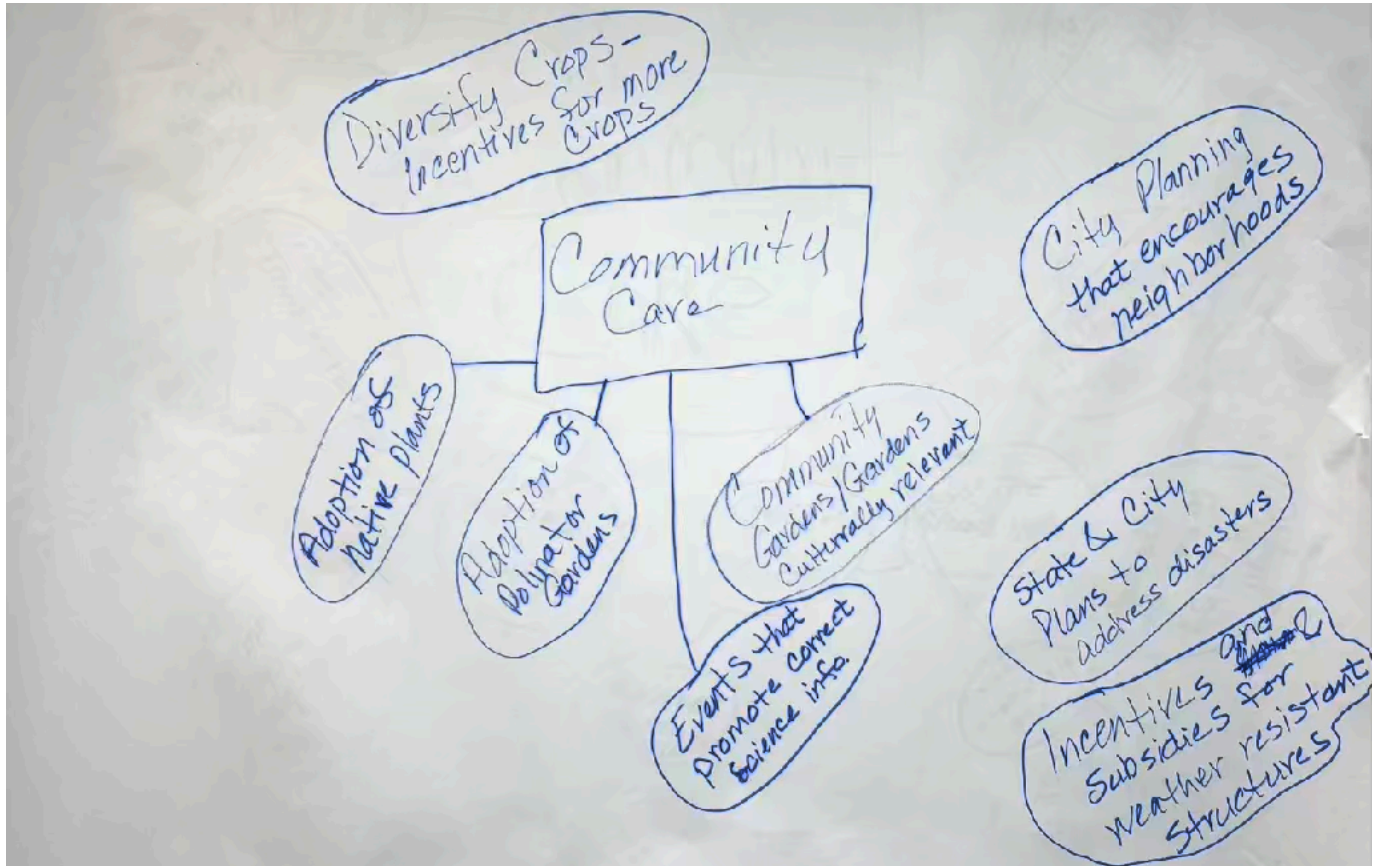 Diversify Crops-
Incentives for more
Crops
Community
Care
City Planning
that encourages
neighborhoods
Adoption of
native plants
Adoption of
Polinator
Gardens
Community
Gardens/Gardens
Culturally relevant
Events that
promote correct
science info.
State & City
Plans to
address disasters
Incentives and
Subsidies for
weather resistant
structures